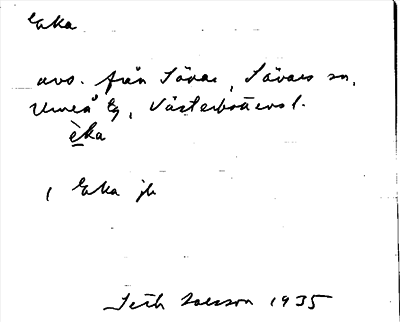 Eka
avs. från Sävar, Sävars sn,
Umeå tg, Västerbottens l.
èka
, Eka jb
Seth Larsson 1935